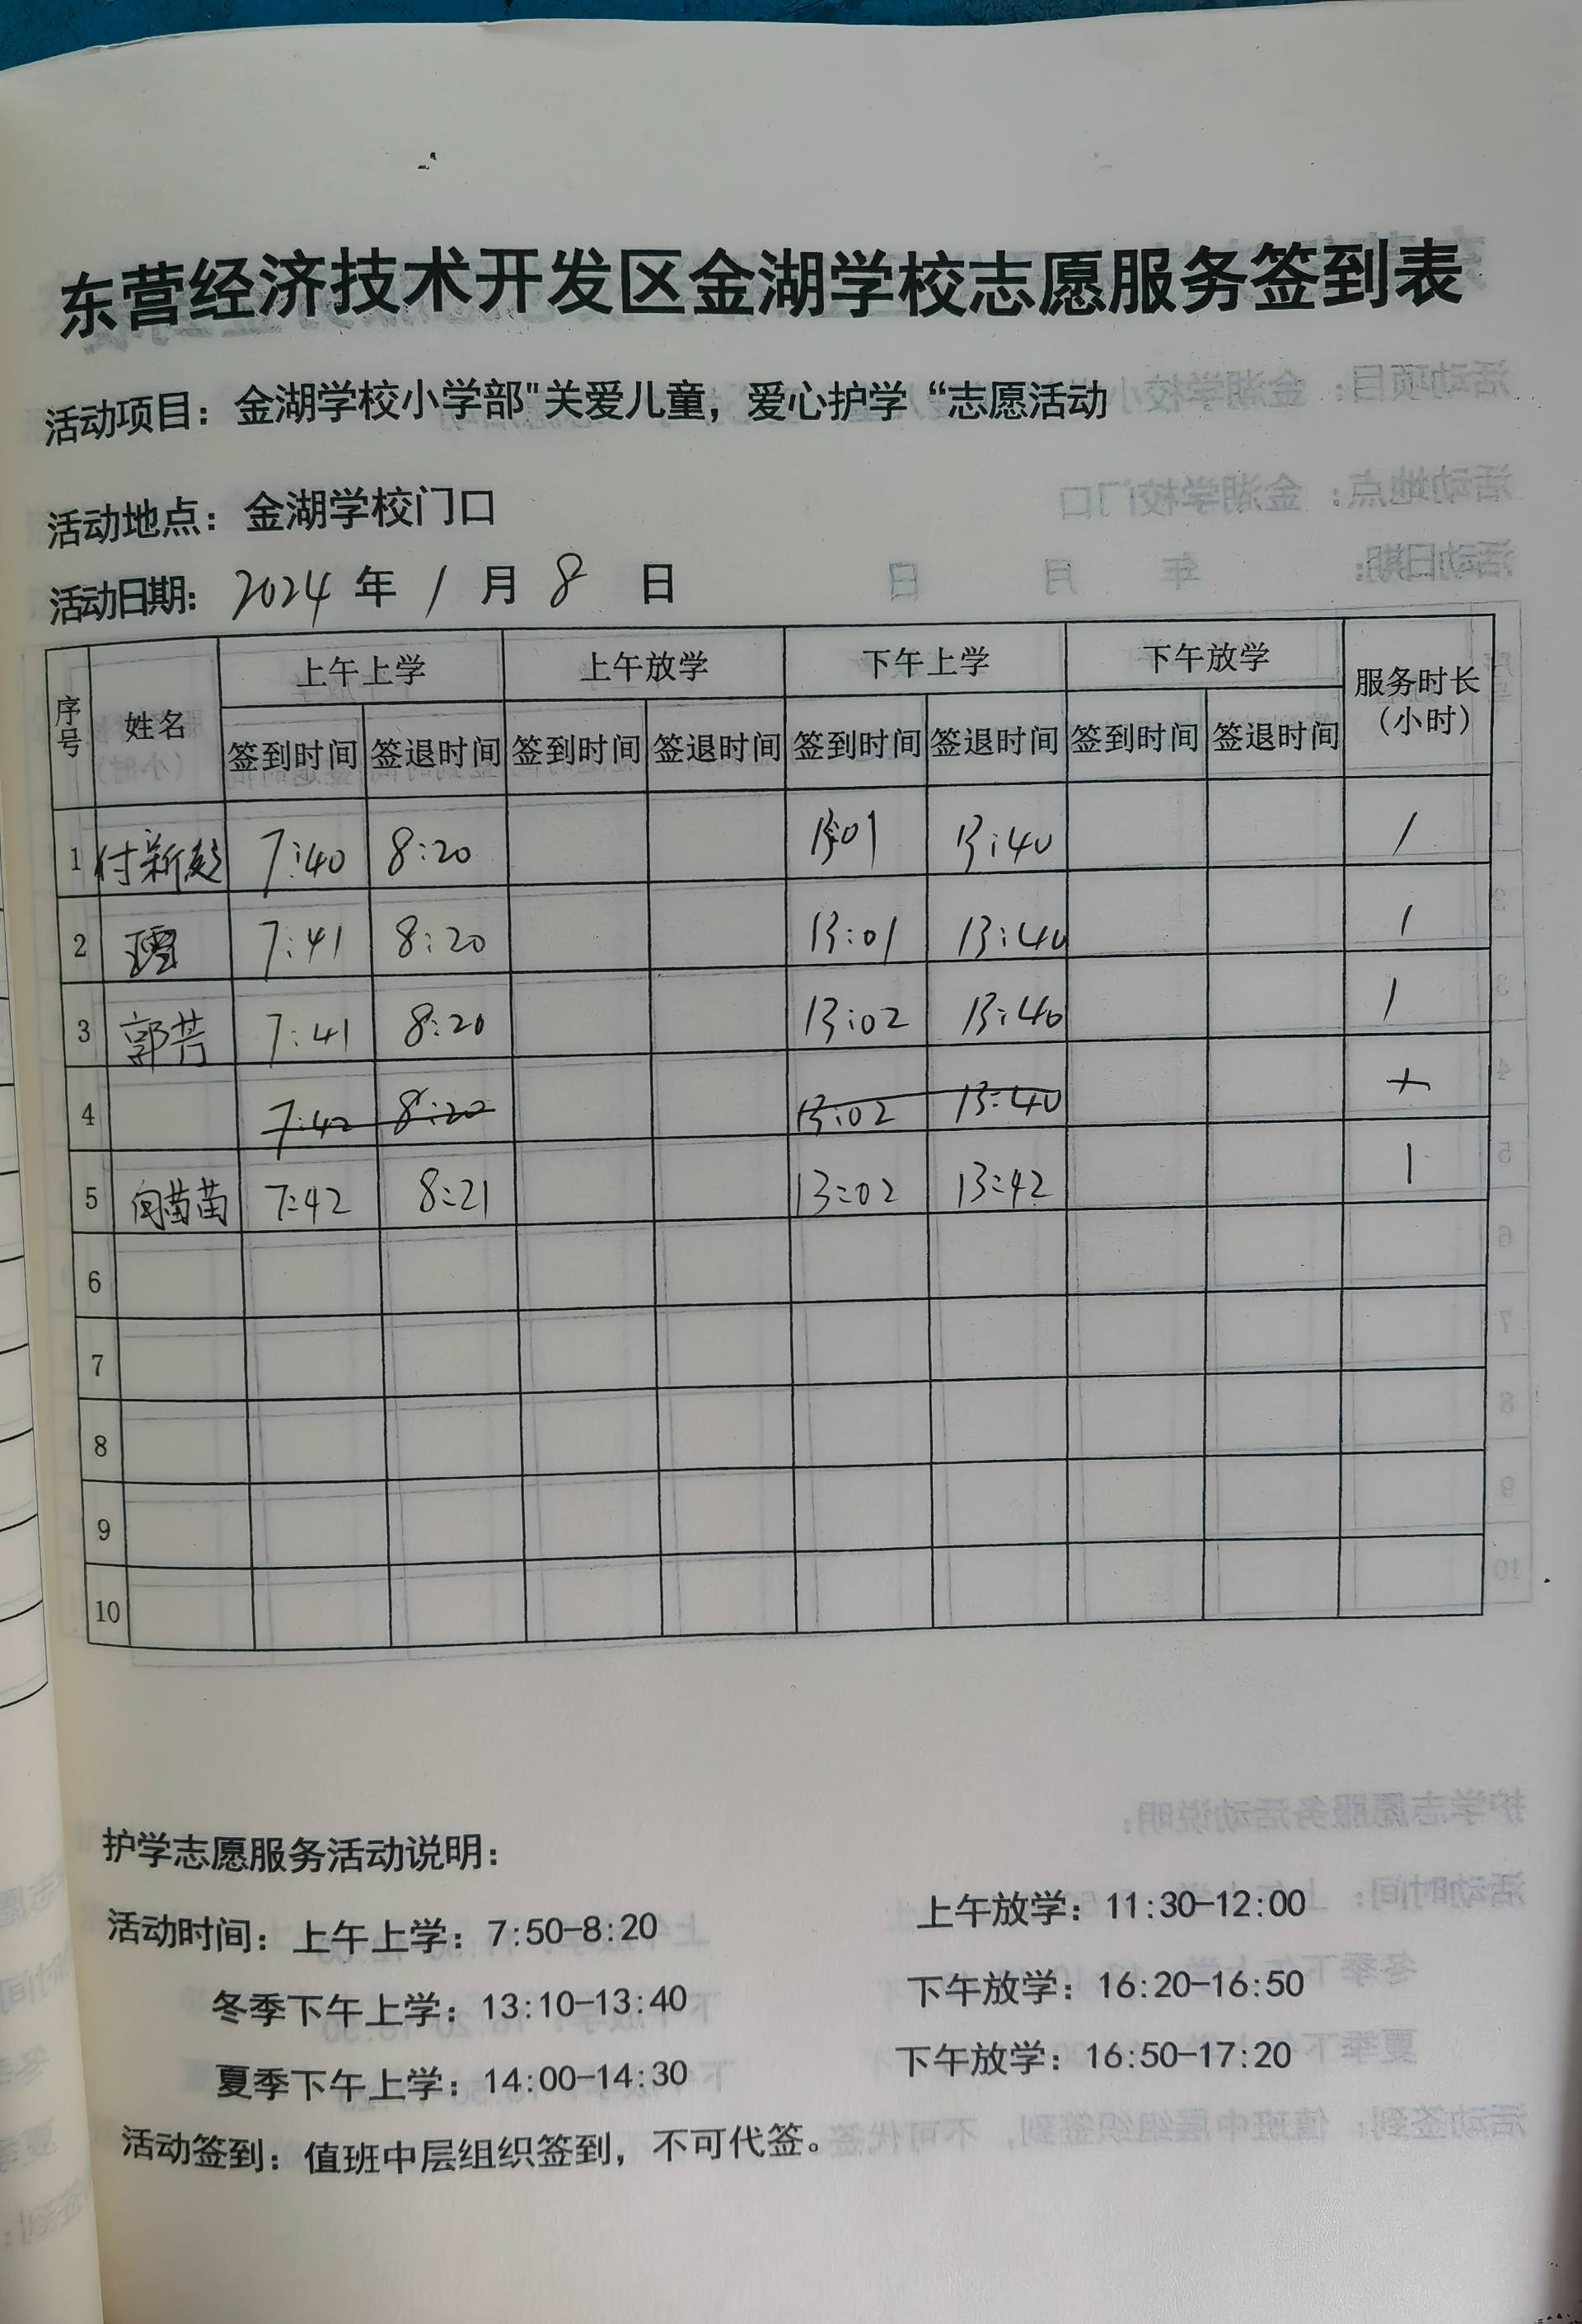 东营经济技术开发区金湖学校志愿服务签到表
活动项目：金湖学校小学部"关爱儿童，爱心护学“志愿活动
活动地点：金湖学校门口
活动日期：2024年1月8日
序号 姓名 上午上学 上午放学 下午上学 下午放学 服务时长（小时）
签到时间 签退时间 签到时间 签退时间 签到时间 签退时间 签到时间 签退时间
1 付新 7:40 8:20 13:01 13:40 1
2 7:41 8:20 13:01 13:40 1
3 郭芳 7:41 8:20 13:02 13:40 1
4 7:42 8:20 13:02 13:40
5 苗苗 7:42 8:21 13:02 13:42 1
6
7
8
9
10
护学志愿服务活动说明：
活动时间：上午上学：7:50-8:20 上午放学：11:30-12:00
冬季下午上学：13:10-13:40 下午放学：16:20-16:50
夏季下午上学：14:00-14:30 下午放学：16:50-17:20
活动签到：值班中层组织签到，不可代签。